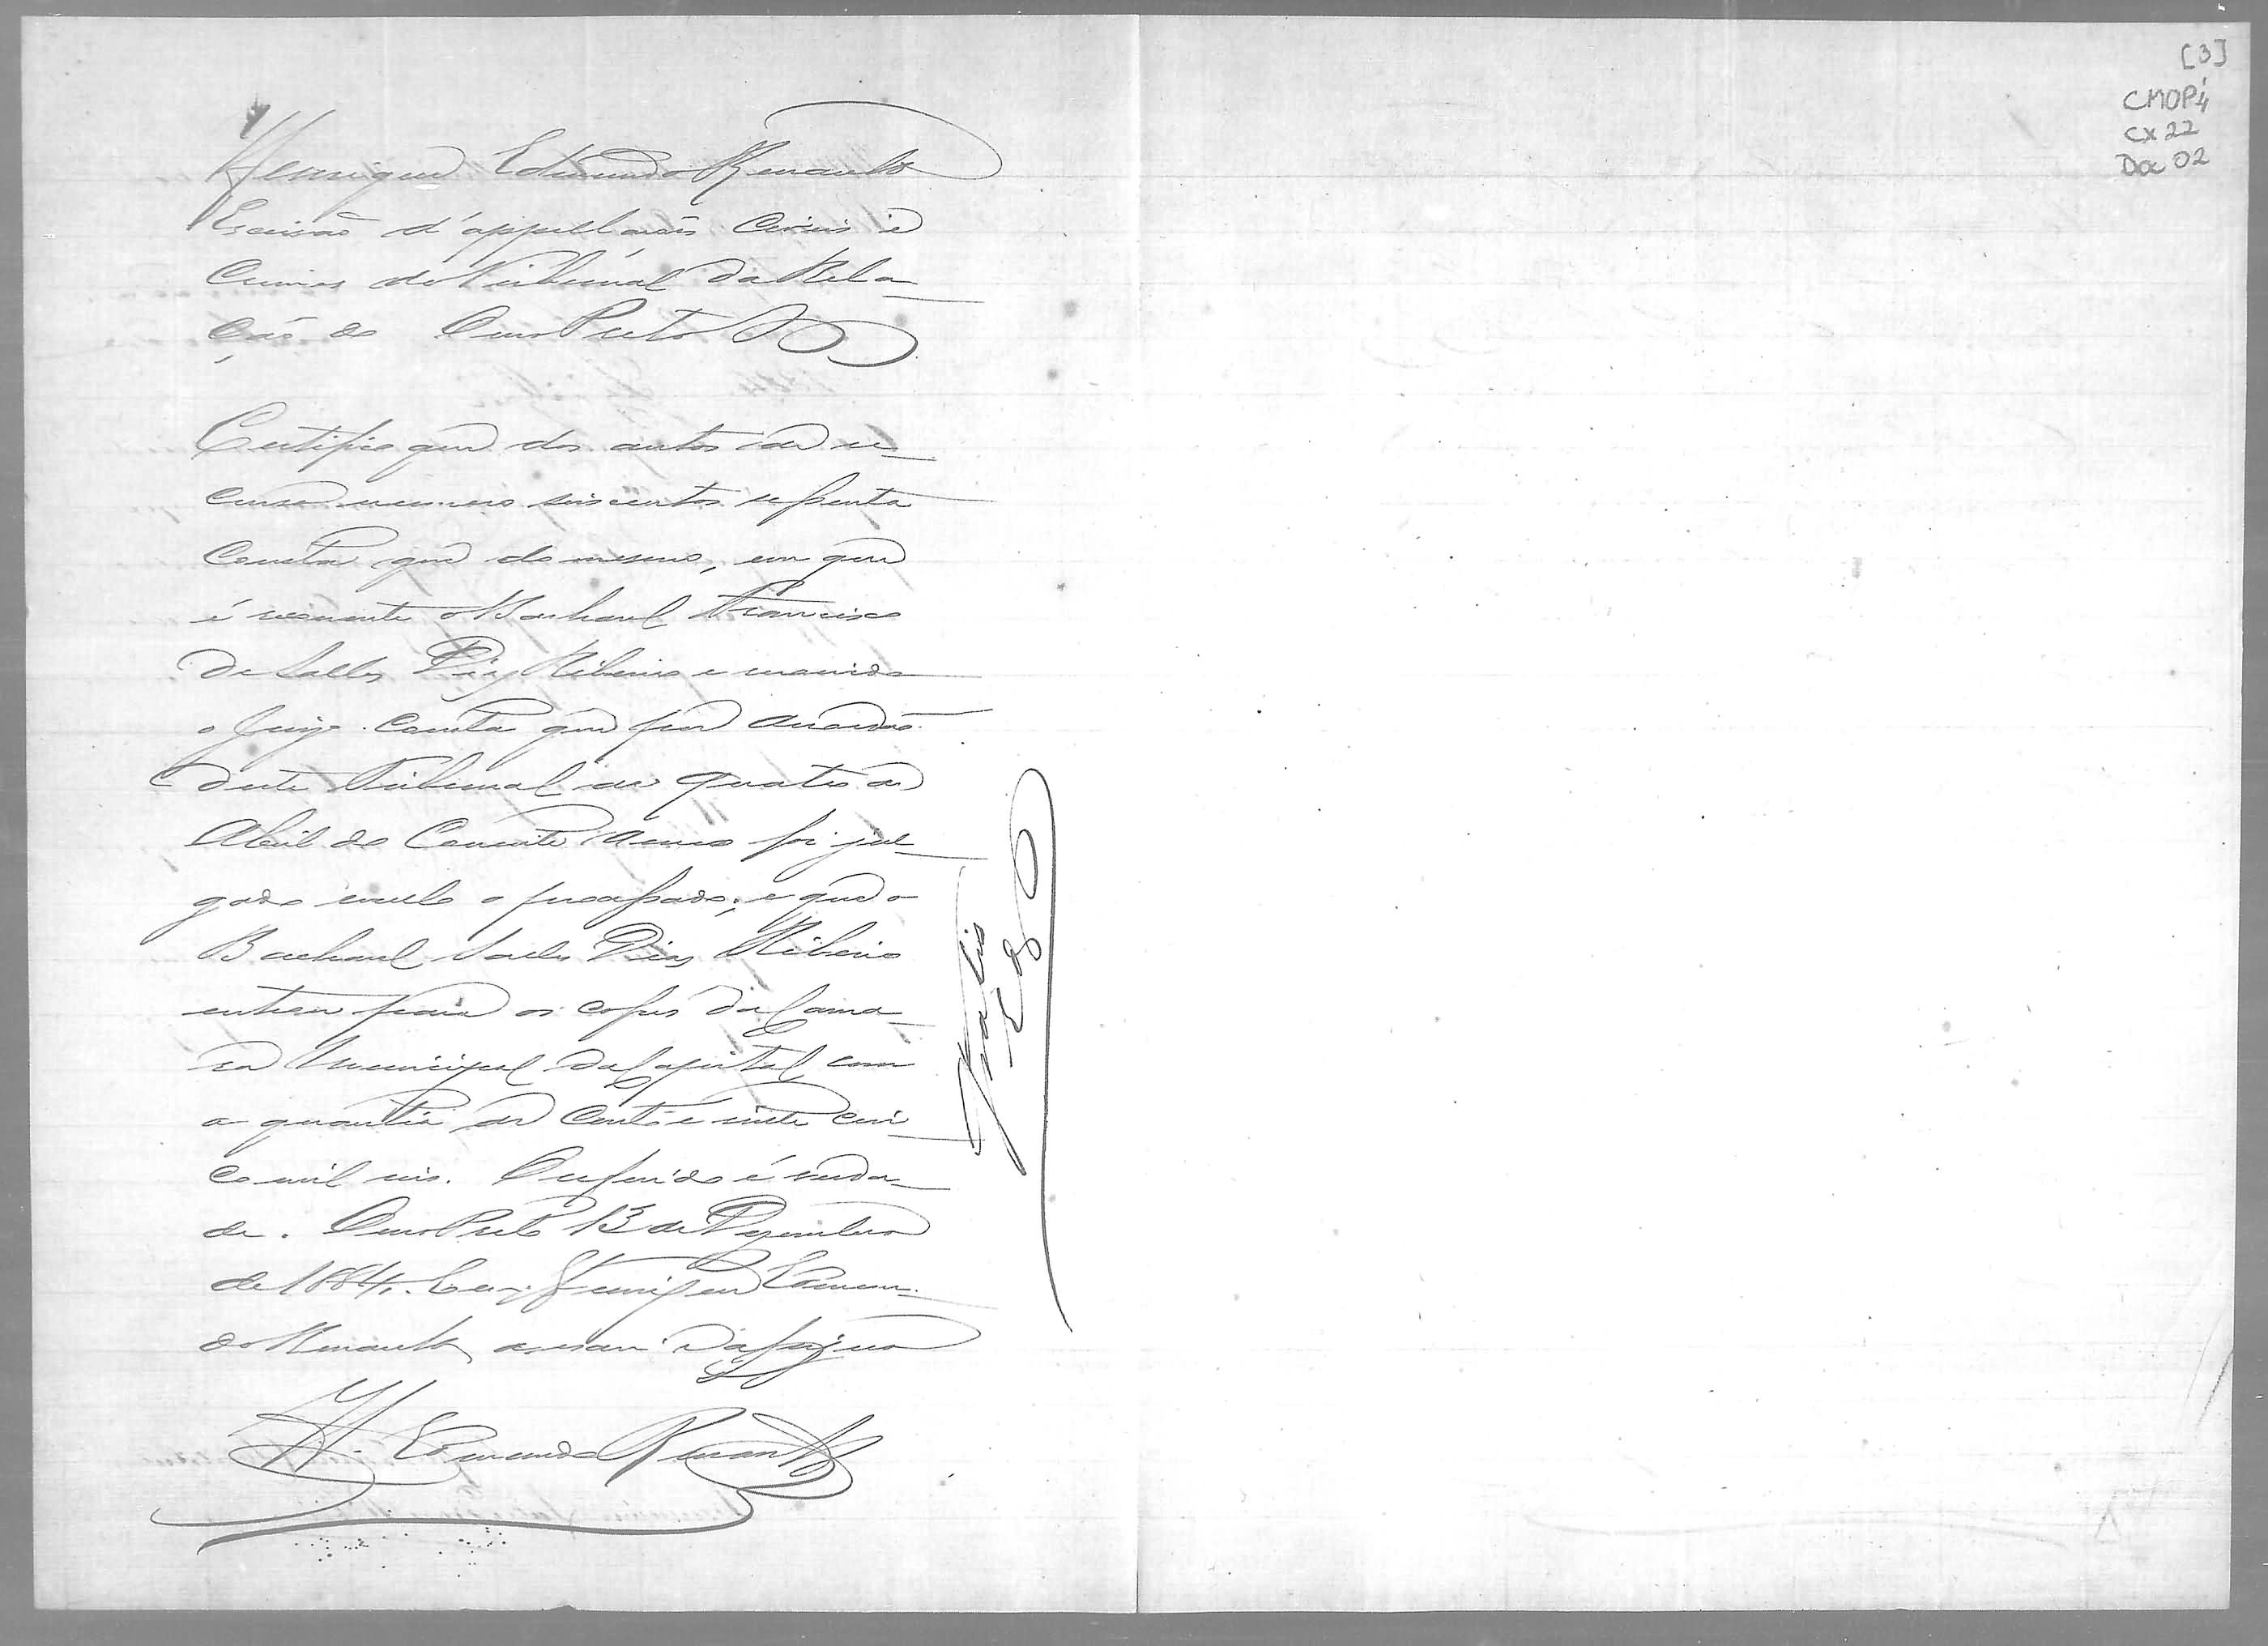 Henrique Edmundo Renault
Escrivão d'appellações Civeis e
Crimes do Tribunal da Rela-
ção de Ouro Preto
Certifico que dos autos de re-
curso numero seiscentos sessenta
Consta que do mesmo, em que
é recorrente o Bacharel Francisco
de Salles Dias Ribeiro e recorrido
o Juizo. Consta que por accordão
deste Tribunal de quatro de
Abril do Corrente anno foi jul-
gado nullo o processado; e que o
Bacharel Salles Dias Ribeiro
entrou para os cofres da Cama-
ra Municipal da Capital, com
a quantia de Cento e vinte cin
co mil reis. O referido é verda-
de. Ouro Preto 13 de Dezembro
de 1884. Eu, Henrique Edmun-
do Renault, escrevi e assigno
H. Edmundo Renault
Gratis
E R
[3]
CMOP
CX 22
Doc 02